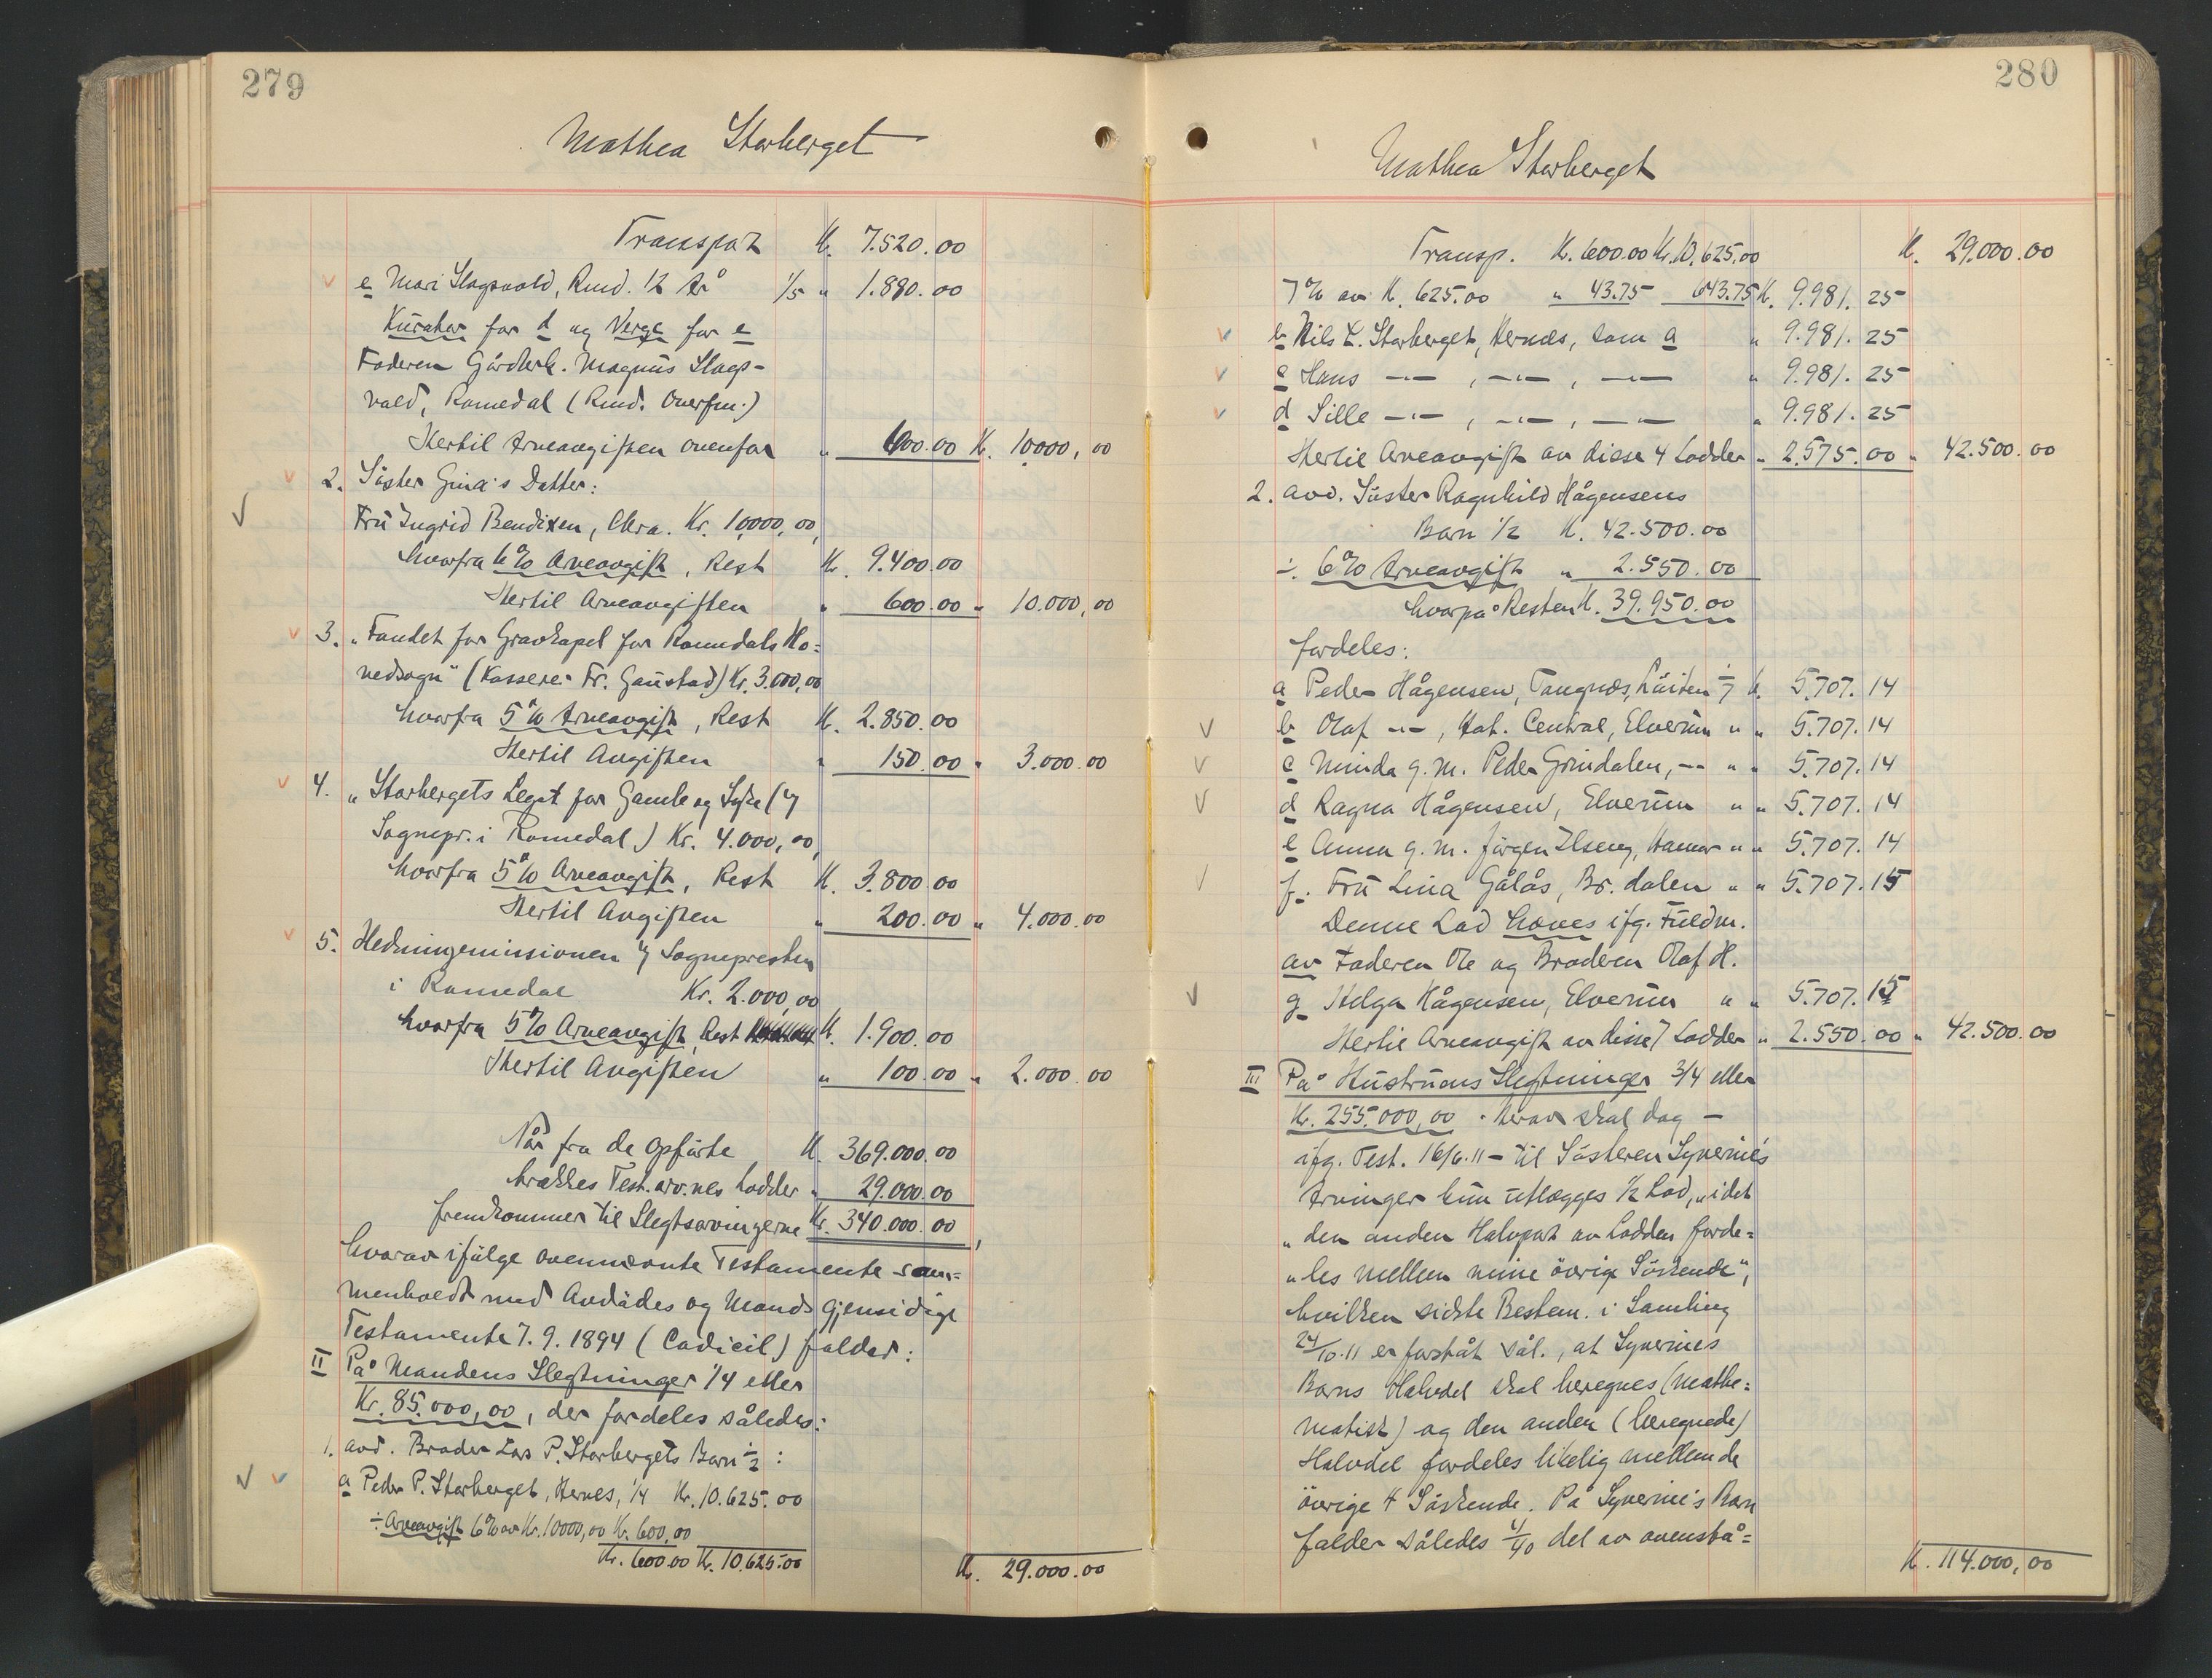 279
Mathea Storberget
Transport Kr. 7.520.00
e Mari Slagsvold, Rmd. 12 År 1/5 " 1.880.00
Kurator for d og Verge for e
Faderen Gårdbrk. Magnus Slags-
vold, Romedal (Rmd. Overfm.)
Hertil Arveavgiften ovenfor " 600.00 Kr. 10000,00
2. Söster Gina's Datter:
Fru Ingrid Bendixen, Chra. Kr. 10000,00,
hvorfra 6% Arveavgift, Rest Kr. 9.400.00
Hertil Arveavgiften " 600.00 " 10.000,00
3. "Fondet for Gravkapel for Romedals Ho=
vedsogn" (Kasserer Fr. Gaustad) Kr. 3.000,00
hvorfra 5% Arveavgift, Rest Kr. 2.850.00
Hertil Avgiften " 150.00 " 3.000.00
4. "Storbergets Legat for Gamle og Syke (v/
Sognepr. i Romedal) Kr. 4.000,00,
hvorfra 5% Arveavgift, Rest Kr. 3.800.00
Hertil Avgiften " 200.00 " 4.000.00
5. Hedningemissionen v/ Sognepresten
i Romedal Kr. 2.000,00
hvorfra 5% Arveavgift, Rest Kr. 1.900.00
Hertil Avgiften " 100.00 " 2.000.00
Når fra de opförte Kr. 369.000.00
trækkes Test.arv.nes Lodder " 29.000.00
fremkommer til Slegtsarvingerne Kr. 340.000.00,
hvorav ifölge ovennævnte Testamente sam=
menholdt med Avdödes og Mands gjensidige
Testamente 7.9.1894 (Codicil) falder:
II På Mandens Slegtninger 1/4 eller
Kr. 85.000,00, der fordeles således:
1. avd. Broder Lars P. Storbergets Barn 1/2:
a Peder P. Storberget, Hernes, 1/4 Kr. 10.625.00
÷ Arveavgift 6% av Kr. 10000,00 Kr. 600,00
Kr. 600.00 Kr. 10.625.00 Kr. 29.000.00
280
Mathea Storberget
Transp. Kr. 600.00 Kr. 10.625.00 Kr. 29.000.00
7% av Kr. 625.00 " 43.75 643.75 Kr. 9.981.25
b Nils L. Storberget, Hernes, som a " 9.981.25
c Hans -"-, -"-, -"- " 9.981.25
d Sille -"-, -"-, -"- " 9.981.25
Hertil Arveavgift av disse 4 Lodder " 2.575.00 " 42.500.00
2. avd. Söster Ragnhild Hågensens
Barn 1/2 Kr. 42.500.00
÷ 6% Arveavgift " 2.550.00
hvorpå Resten Kr. 39.950.00
fordeles:
a Peder Hågensen, Tangnes, Löiten 1/7 Kr. 5.707.14
b Olaf -"-, Hot. Central, Elverum " " 5.707.14
c Minda g. m. Peder Grindalen, -"- " " 5.707.14
d Ragna Hågensen, Elverum " " 5.707.14
e Anna g. m. Jörgen Ilseng, Hamar " " 5.707.14
f. Fru Lina Gålås, Br.dalen " " 5.707.15
Denne Lod hæves ifg. Fuldm.
av Faderen Ole og Broderen Olaf H.
g Helga Hågensen, Elverum " " 5.707.15
Hertil Arveavgift av disse 7 Lodder " 2.550.00 " 42.500.00
III På Hustruens Slegtninger 3/4 eller
Kr. 255.000,00. herav skal dog -
ifg. Test. 16/6.11 - til Sösteren Syverine's
Arvinger kun utlægges 1/2 Lod, "idet
"den anden Halvpart av Lodden forde=
"les mellem mine övrige Söskende",
hvilken sidste Bestem. i Samling
24/10.11 er forståt sål., at Syverines
Barns Halvdel skal beregnes (mathe=
matisk) og den anden (beregnede)
Halvdel fordeles likelig mellem de
övrige 4 Söskende. På Syverine's Barn
falder således 4/40 del av ovenstå=
Kr. 114.000,00